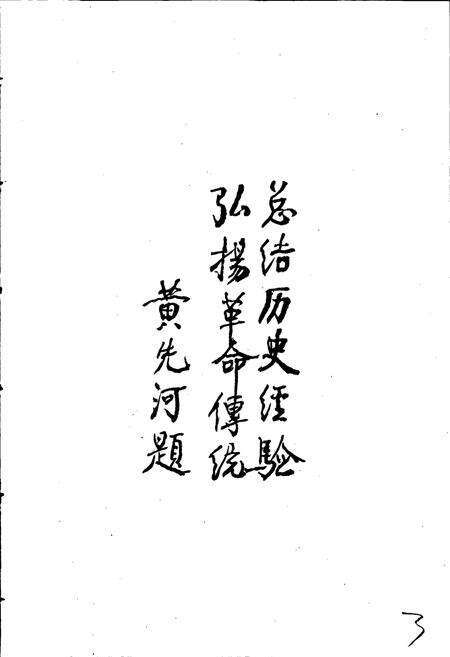 总结历史经验
弘揚革命傳统
黄先河题
3